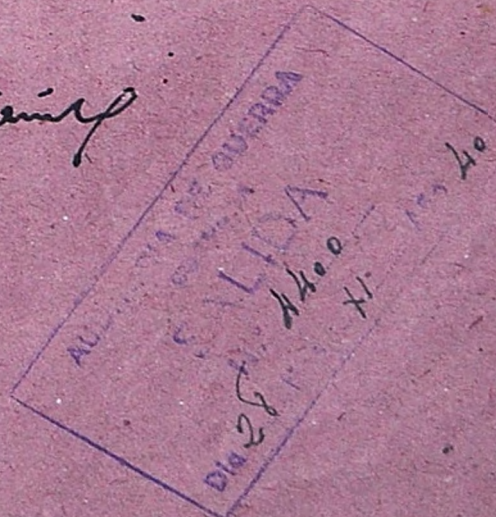 AUDITORIA DE GUERRA
SALIDA
Nº. 4400
Dia 28 Mes XI. Año 40